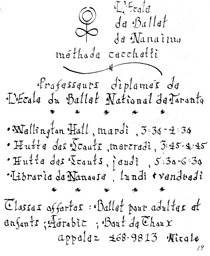 L'École
de Ballet
de Nanaimo
méthode cecchetti
Professeurs diplomés de
L'École du Ballet National de Toronto
• Wellington Hall, mardi, 3:30-4:30
• Hutte des Scouts, mercredi, 3:45-4:45
• Hutte des Scouts, jeudi, 5:30-6:30
• Librarie de Nanoose, lundi + vendredi
Classes offertes: Ballet pour adultes et
enfants; Aérobic; Bout de Choux
appelez 468-9813 Nicole
19